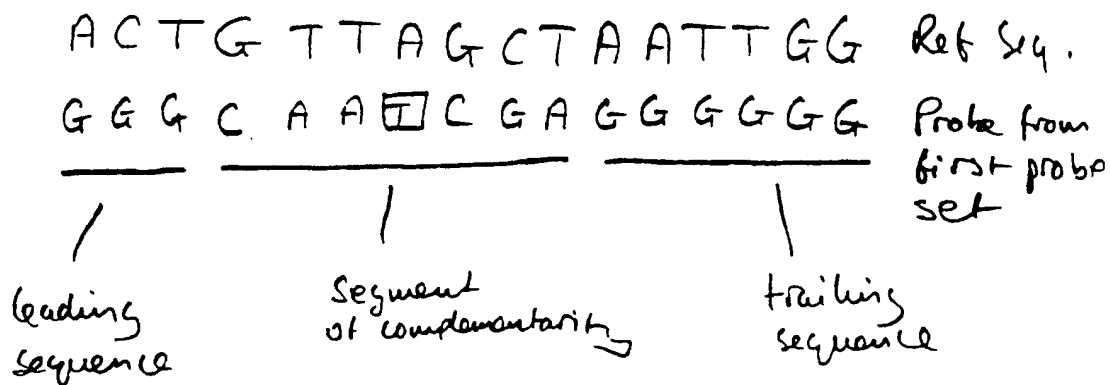 A C T G T T A G C T A A T T G G Ref Seq.
G G G C. A A T C G A G G G G G G Probe from
first probe
set
leading
sequence
segment
of complementarity
trailing
sequence